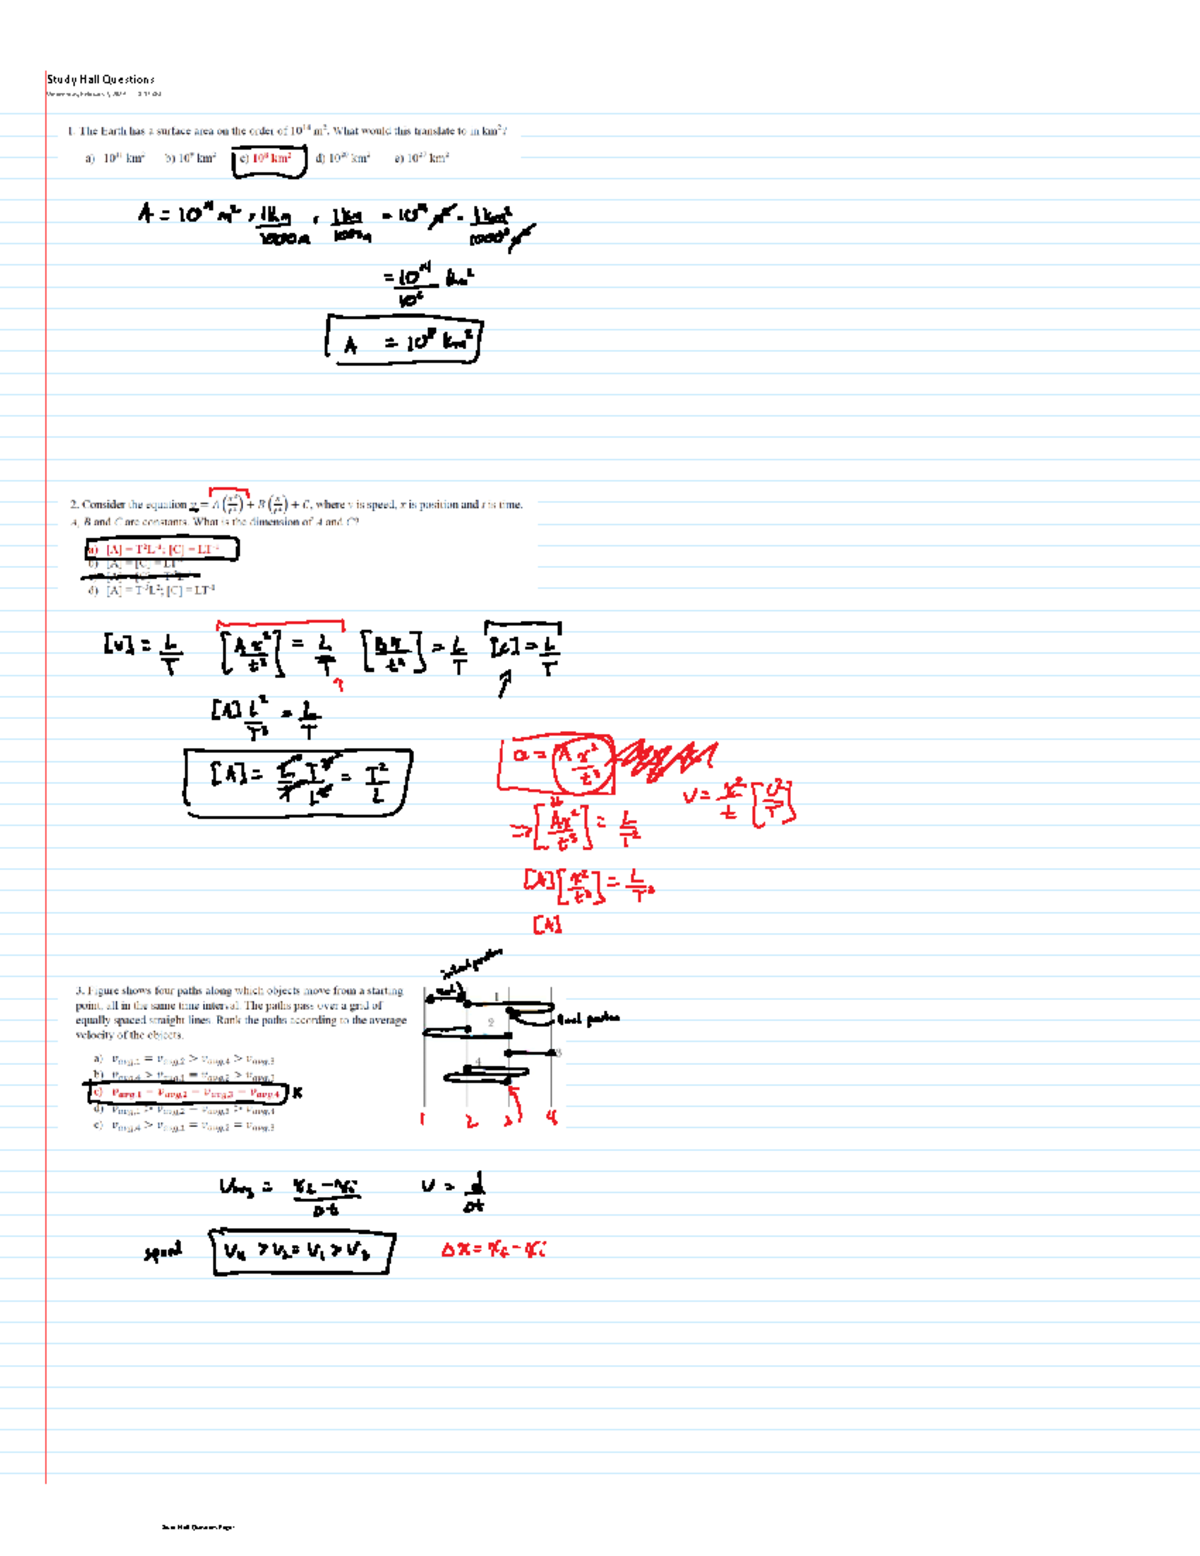 Study Hall Questions
1. The Earth has a surface area on the order of 10¹⁴ m². What would this translate to in km²?
a) 10¹¹ km² b) 10⁹ km² c) 10⁸ km² d) 10²⁰ km² e) km²
A = 10¹⁴ m² · 1km/1000m · 1km/1000m = 10¹⁴ m² · 1km²/1000² m²
= 10¹⁴/10⁶ km²
A = 10⁸ km²
2. Consider the equation v = A(x²/t³) + B(x/t²) + C, where v is speed, x is position and t is time.
A, B and C are constants. What is the dimension of A and C?
a) [C] = LT⁻¹
d) [C] = LT⁻¹
[v] = L/T [Ax²/t³] = L/T [Bx/t²] = L/T [C] = L/T
[A] L²/T³ = L/T
[A] = L/T T³/L² = T²/L
a = A x²/t³
v = x²/t [L²/T]
⇒ [Ax²/t³] = L/T²
[A][x²/t³] = L/T²
[A]
3. Figure shows four paths along which objects move from a starting
point, all in the same time interval. The paths pass over a grid of
equally spaced straight lines. Rank the paths according to the average
velocity of the objects.
initial position
1
2
final position
3
4
a) v_avg,1 = v_avg,2 > v_avg,4 > v_avg,3
b) v_avg,4 > v_avg,1 = v_avg,2 > v_avg,3
c) v_avg,1 = v_avg,2 = v_avg,3 = v_avg,4 x
e) v_avg,4 > v_avg,1 = v_avg,2 = v_avg,3
1 2 3 4
V_avg = x_f - x_i / Δt V = d/Δt
speed V₄ > V₂ = V₁ > V₃ Δx = x_f - x_i